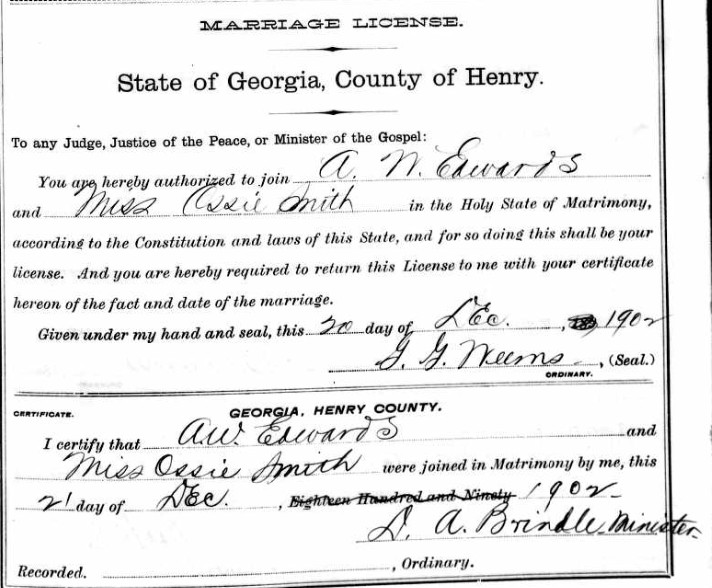 MARRIAGE LICENSE.
State of Georgia, County of Henry.
To any Judge, Justice of the Peace, or Minister of the Gospel:
You are hereby authorized to join A. W. Edwards
and Miss Ossie Smith in the Holy State of Matrimony,
according to the Constitution and laws of this State, and for so doing this shall be your
license. And you are hereby required to return this License to me with your certificate
hereon of the fact and date of the marriage.
Given under my hand and seal, this 20 day of Dec. , 1902
G. G. Weems , (Seal.)
ORDINARY.
CERTIFICATE. GEORGIA, HENRY COUNTY.
I certify that A.W. Edwards and
Miss Ossie Smith were joined in Matrimony by me, this
21 day of Dec. , Eighteen Hundred and Ninety 1902
D. A. Brindle Minister.
Recorded. , Ordinary.